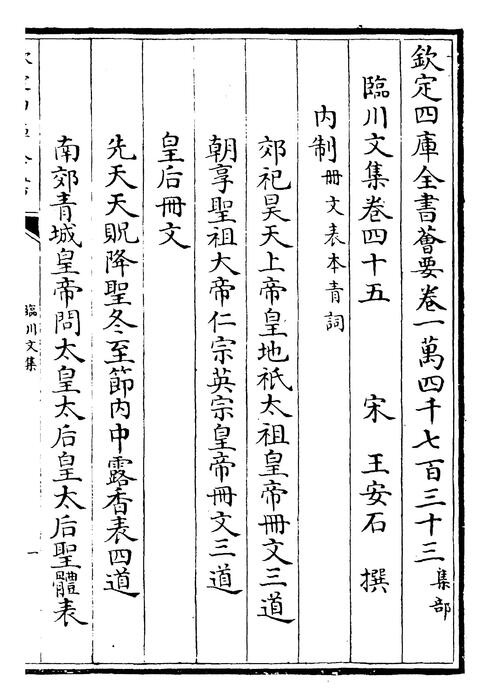 欽定四庫全書薈要卷一萬四千七百三十三 集部
臨川文集卷四十五 宋 王安石 撰
內制 冊文 表本 青詞
郊祀昊天上帝皇地祇太祖皇帝冊文三道
朝享聖祖大帝仁宗英宗皇帝冊文三道
皇后冊文
先天天貺降聖冬至節內中露香表四道
南郊青城皇帝問太皇太后皇太后聖體表
臨川文集
一